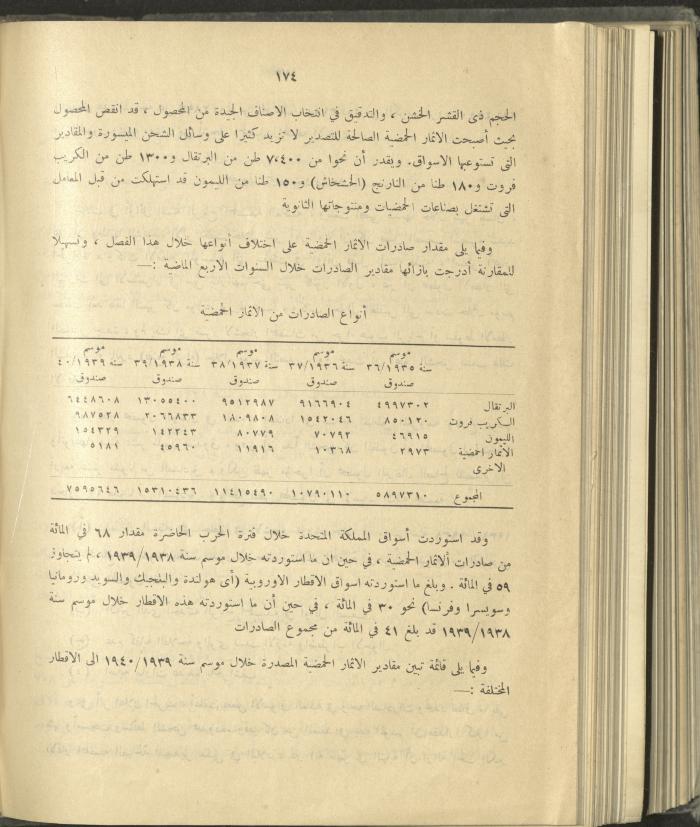 ١٧٤
الحجم ذى القشر الخشن ، والتدقيق في انتخاب الاصناف الجيدة من المحصول ، قد انقض المحصول
بحيث أصبحت الاثمار الحمضية الصالحة للتصدير لا تزيد كثيرا على وسائل الشحن الميسورة والمقادير
التى تستوعبها الاسواق. ويقدر أن نحوا من ٧،٤٠٠ طن من البرتقال و١٣٠٠ طن من الكريب
فروت و١٨٠ طنا من النارنج (الخشخاش) و١٥٠ طنا من الليمون قد استهلكت من قبل المعامل
التى تشتغل بصناعات الحمضيات ومنتوجاتها الثانوية
وفيما يلى مقدار صادرات الاثمار الحمضية على اختلاف أنواعها خلال هذا الفصل ، وتسهيلا
للمقارنة أدرجت بازائها مقادير الصادرات خلال السنوات الاربع الماضية :—
أنواع الصادرات من الاثمار الحمضية
موسم موسم موسم موسم موسم
سنة ٣٦/١٩٣٥ سنة ٣٧/١٩٣٦ سنة ٣٨/١٩٣٧ سنة ٣٩/١٩٣٨ سنة ٤٠/١٩٣٩
صندوق صندوق صندوق صندوق صندوق
البرتقال ٤٩٩٧٣٠٢ ٩١٦٦٩٠٤ ٩٥١٢٩٨٧ ١٣٠٥٥٤٠٠ ٦٤٤٨٦٠٨
الكريب فروت ٨٥٠١٢٠ ١٥٤٢٠٤٦ ١٨٠٩٨٠٨ ٢٠٦٦٨٣٣ ٩٨٧٥٢٨
الليمون ٤٦٩١٥ ٧٠٧٩٢ ٨٠٧٧٩ ١٤٢٢٤٣ ١٥٤٣٢٩
الاثمار الحمضية ٢٩٧٣ ١٠٣٦٨ ١١٩١٦ ٤٥٩٦٠ ٥١٨١
الاخرى
المجموع ٥٨٩٧٣١٠ ١٠٧٩٠١١٠ ١١٤١٥٤٩٠ ١٥٣١٠٤٣٦ ٧٥٩٥٦٤٦
وقد استوردت أسواق المملكة المتحدة خلال فترة الحرب الحاضرة مقدار ٦٨ في المائة
من صادرات ألاثمار الحمضية ، في حين ان ما استوردته خلال موسم سنة ١٩٣٩/١٩٣٨ ، لم يتجاوز
٥٩ في المائة . وبلغ ما استوردته اسواق الاقطار الاوروبية (أى هولندة والبلجيك والسويد ورومانيا
وسويسرا وفرنسا) نحو ٣٠ في المائة ، في حين أن ما استوردته هذه الاقطار خلال موسم سنة
١٩٣٩/١٩٣٨ قد بلغ ٤١ في المائة من مجموع الصادرات
وفيما يلى قائمة تبين مقادير الاثمار الحمضية المصدرة خلال موسم سنة ١٩٤٠/١٩٣٩ الى الاقطار
المختلفة :—